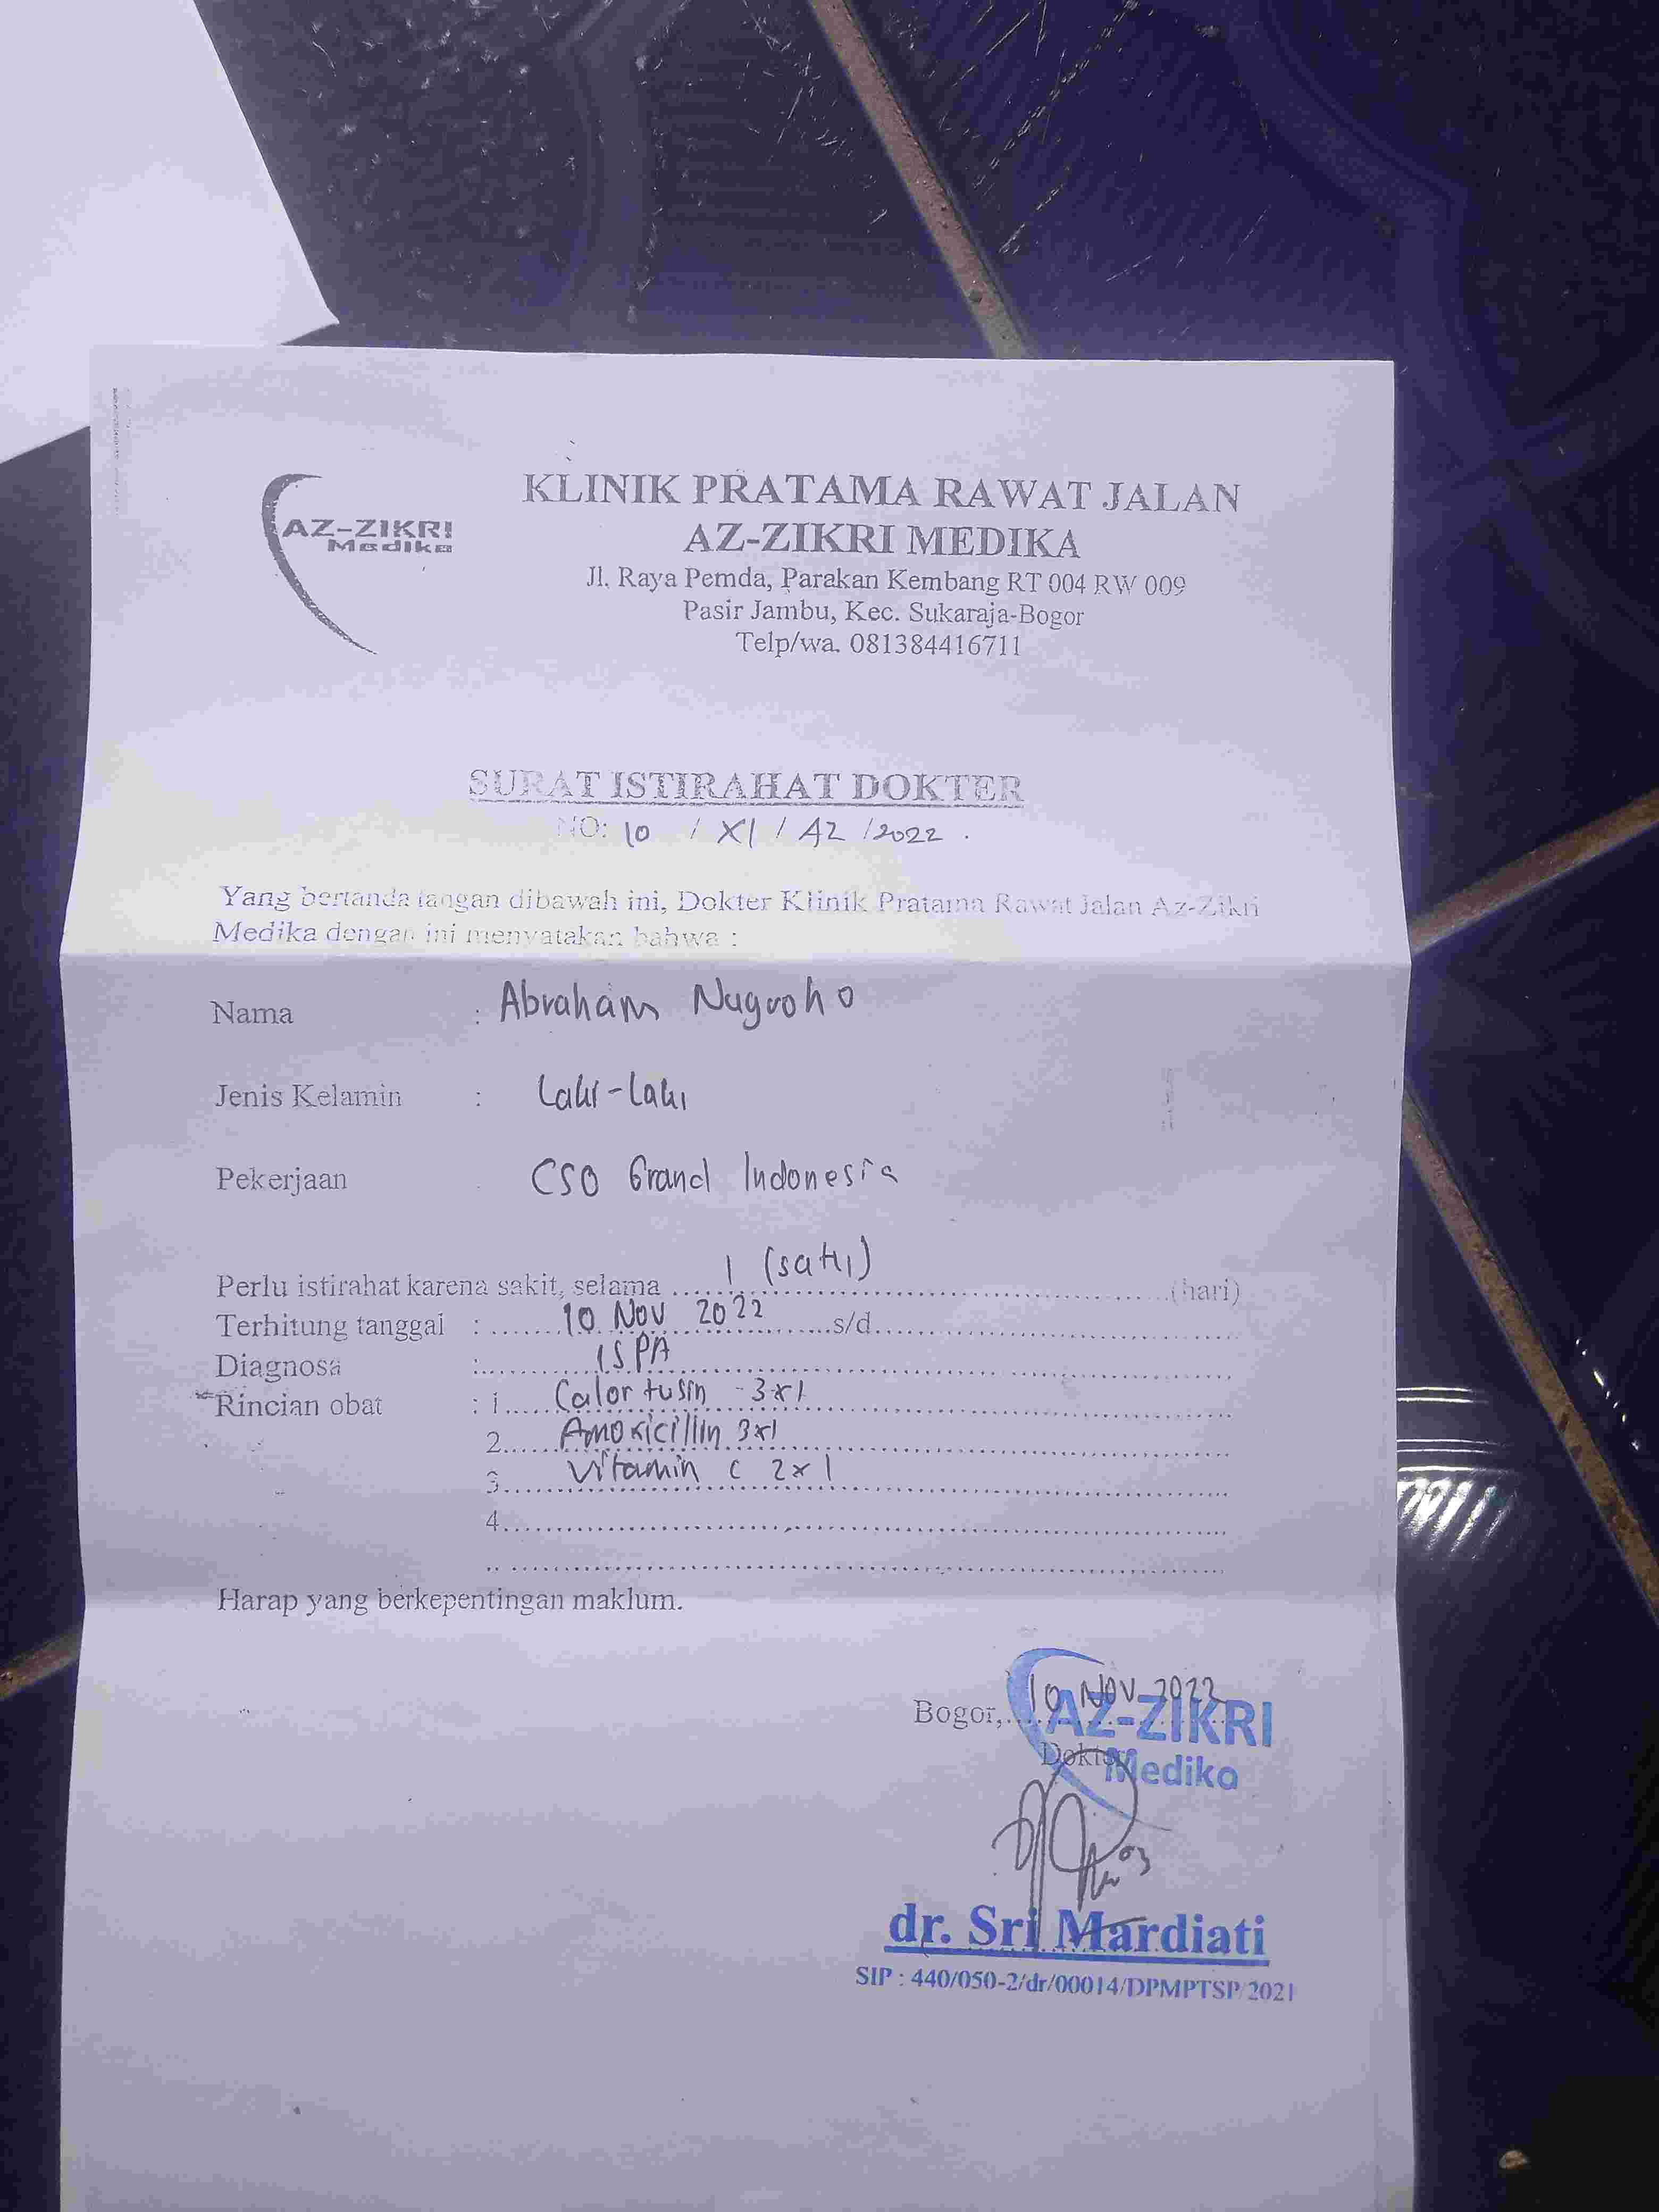 AZ-ZIKRI
Medika
KLINIK PRATAMA RAWAT JALAN
AZ-ZIKRI MEDIKA
Jl. Raya Pemda, Parakan Kembang RT 004 RW 009
Pasir Jambu, Kec. Sukaraja-Bogor
Telp/wa. 081384416711
SURAT ISTIRAHAT DOKTER
NO: 10 / XI / AZ /2022.
Yang bertanda tangan dibawah ini, Dokter Klinik Pratama Rawat Jalan Az-Zikri
Medika dengan ini menyatakan bahwa :
Nama : Abraham Nugroho
Jenis Kelamin : Laki-Laki
Pekerjaan CSO Grand Indonesia
Perlu istirahat karena sakit, selama 1 (satu) (hari)
Terhitung tanggal : 10 Nov 2022 s/d
Diagnosa : ISPA
Rincian obat : 1. Calortusin - 3x1
2. Amoxicillin 3x1
3. Vitamin C 2x1
4.
Harap yang berkepentingan maklum.
Bogor, 10 NOV 2022
Dokter
AZ-ZIKRI
Medika
dr. Sri Mardiati
SIP : 440/050-2/dr/00014/DPMPTSP/2021